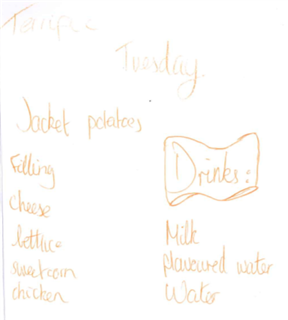 Terrific
Tuesday.
Jacket potatoes
Filling
cheese
lettuce
sweetcorn
chicken
Drinks:
Milk
flavoured water
Water